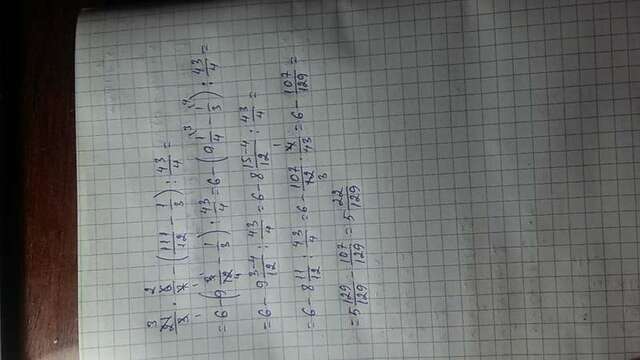 21/3 · 6/7 - (111/12 - 1/3) : 43/4 =
= 6 - (9 3/12 - 1/3) : 43/4 = 6 - (9 1/4 - 1/3) : 43/4 =
= 6 - 9 3-4/12 : 43/4 = 6 - 8 15-4/12 : 43/4 =
= 6 - 8 11/12 : 43/4 = 6 - 107/12 · 4/43 = 6 - 107/129 =
= 5 129/129 - 107/129 = 5 22/129